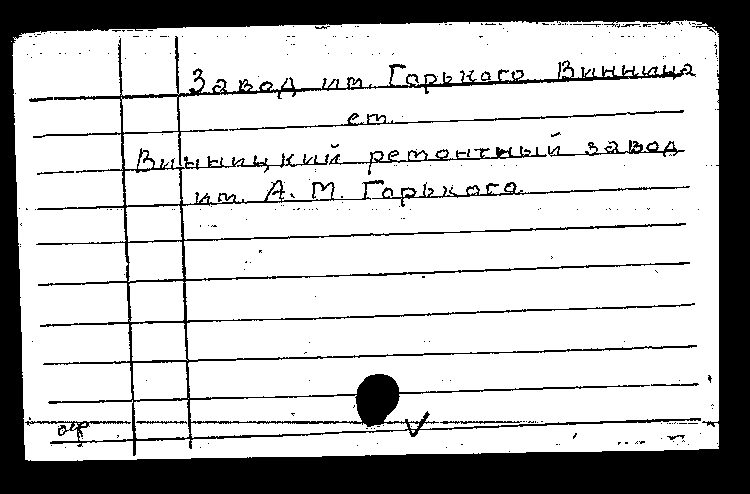 Завод им. Горького Винница
см.
Винницкий ремонтный завод
им. А. М. Горького.